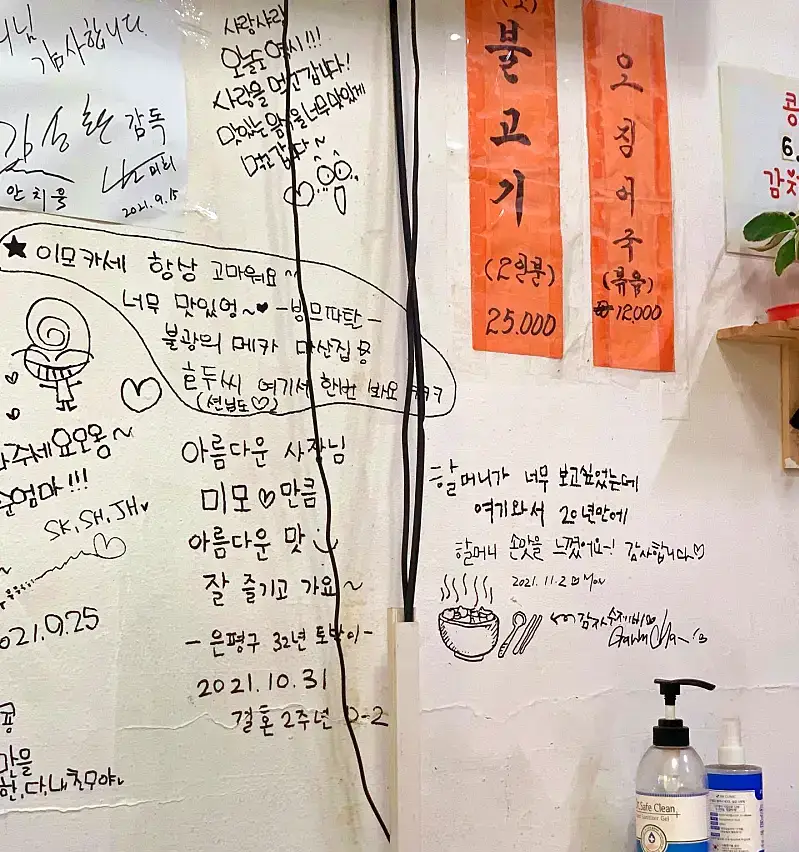 감사합니다.
감독
안치욱
미희
2021.9.15
사랑사랑
오늘도 역시!!!
사랑을 먹고갑니다!
맛있는 음식을 너무 맛있게
먹고갑니다~
★ 이모카세 항상 고마워요~
너무 맛있엉~♥ -빙므파탄-
불광의 메카 마산집
여기서 한번 봐요 ㅋㅋㅋ
(션님도♡)
주세요오옹~
엄마!!!
SK, SH, JH♥
2021.9.25
아름다운 사장님
미모♡만큼
아름다운 맛
잘 즐기고 가요~
-은평구 32년 토박이-
2021.10.31
결혼 2주년 D-2
할머니가 너무 보고싶었는데
여기와서 20년만에
할머니 손맛을 느꼈어요~! 감사합니다♡
2021.11.22 Mon
감자수제비
불고기
(2인분)
25.000
오징어국
(볶음)
12,000
콩
6.
감자
Safe Clean
Sanitizer Gel